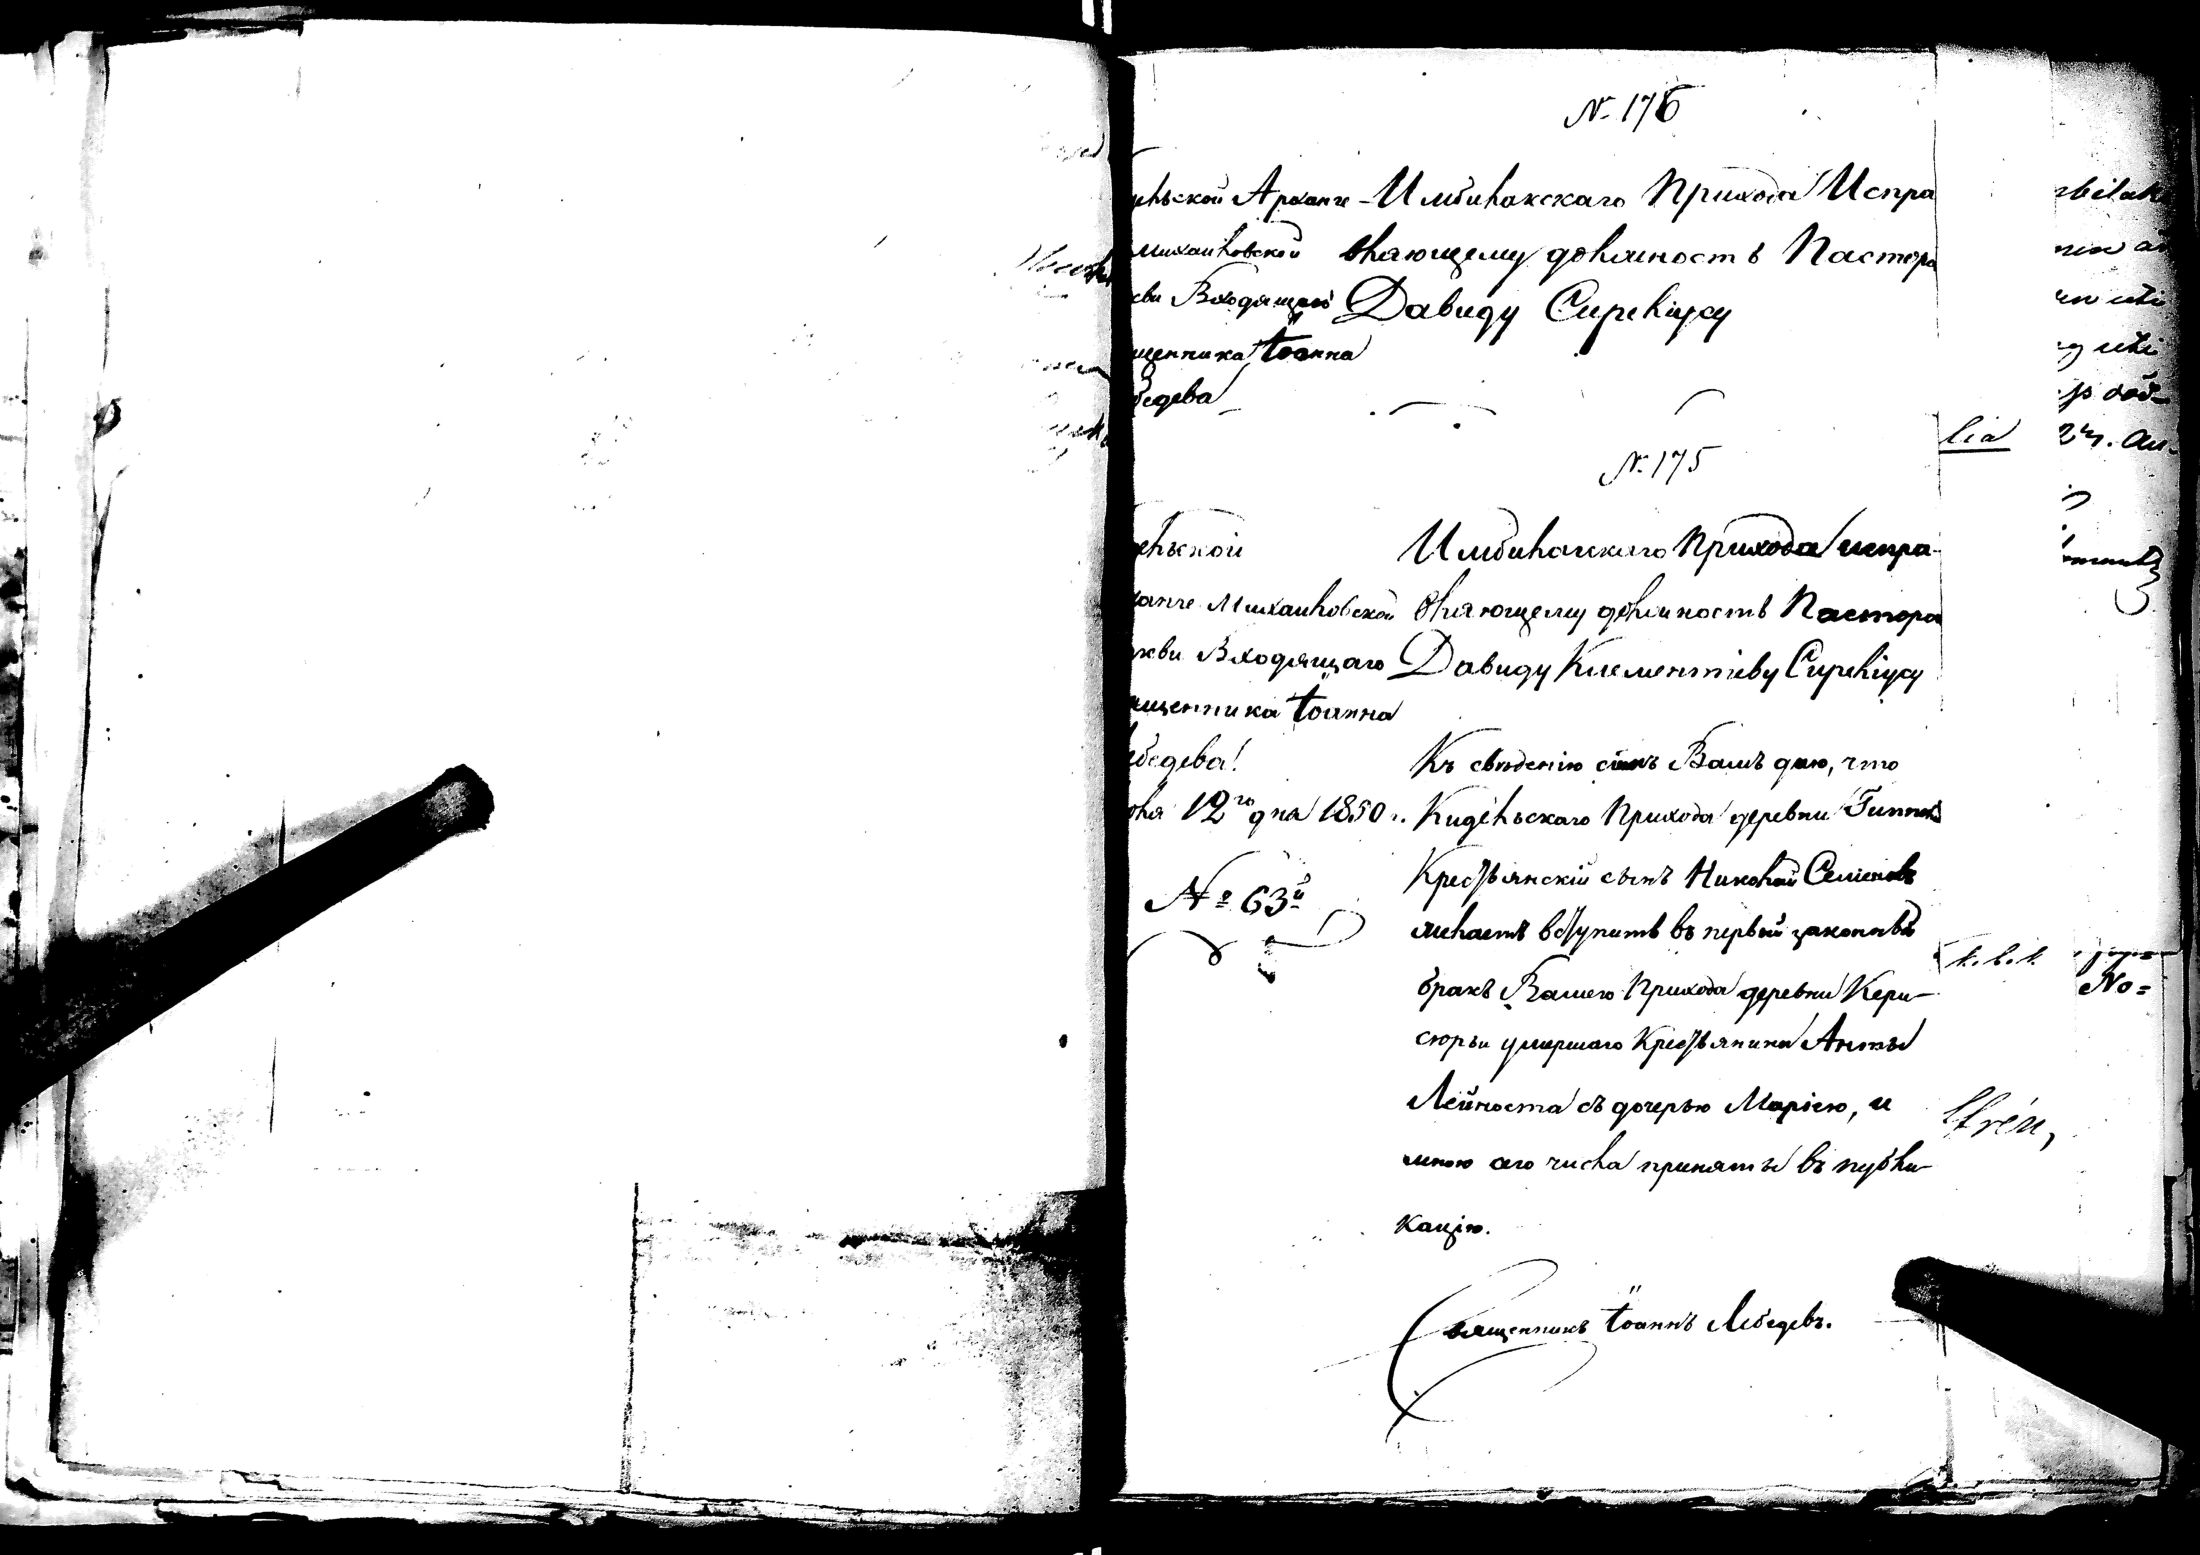 № 176
ельской Арханге-
Михайловской
кви Входящаго
щенника Іоанна
бедева
Имбилакскаго Прихода Испра
вляющему должность Пастора
Давиду Сирелiусу
№ 175
ельской
ханге Михайловской
ркви Входящаго
ященника Іоанна
ебедева!
юля 12го дня 1850 г.
№ 63й
Имбилакскаго Прихода испра-
вляющему должность Пастора
Давиду Клементiеву Сирелiусу
Къ свѣденiю симъ Вамъ даю, что
Кидельскаго Прихода деревни
Крестьянскiй сынъ Николай Семеновъ
желаетъ вступить въ первый законный
бракъ Вашего Прихода деревни Кери-
сюрьи умершаго Крестьянина Анты
Лейноста съ дочерью Марiею, и
мною сего числа приняты въ публи-
кацiю.
Священникъ Іоаннъ Лебедевъ.
lia
k. b. k.
No=